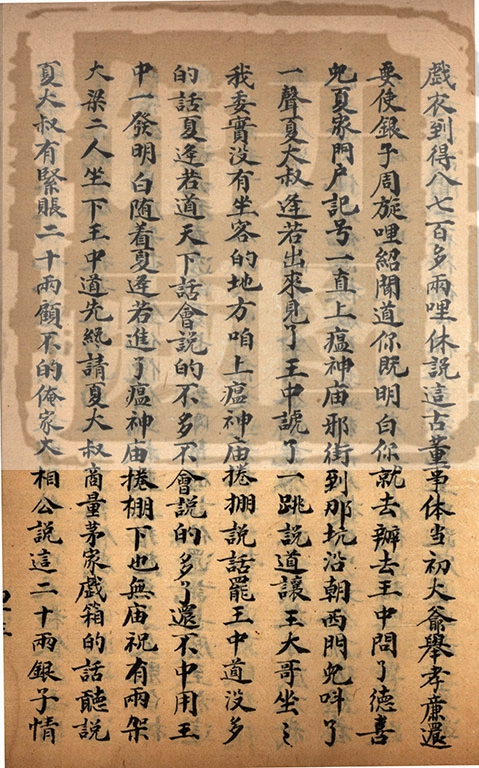 戲衣到得八七百多兩哩休說這古董事体當初大爺舉孝廉還
要使銀子周旋哩紹聞道你既明白你就去辦去王中問了德喜
兒夏家門户記号一直上瘟神庙邪街到那坑沿朝西門兒呌了
一聲夏大叔逢若出來見了王中諕了一跳說道讓王大哥坐坐
我委實没有坐客的地方咱上瘟神庙捲棚說話罷王中道没多
的話夏逢若道天下話會說的不多不會說的多了還不中用王
中一發明白随着夏逢若進了瘟神庙捲棚下也無庙祝有兩架
大梁二人坐下王中道先縂請夏大叔商量茅家戲箱的話聽說
夏大叔有緊賬二十兩顧不的俺家大相公說這二十兩銀子情